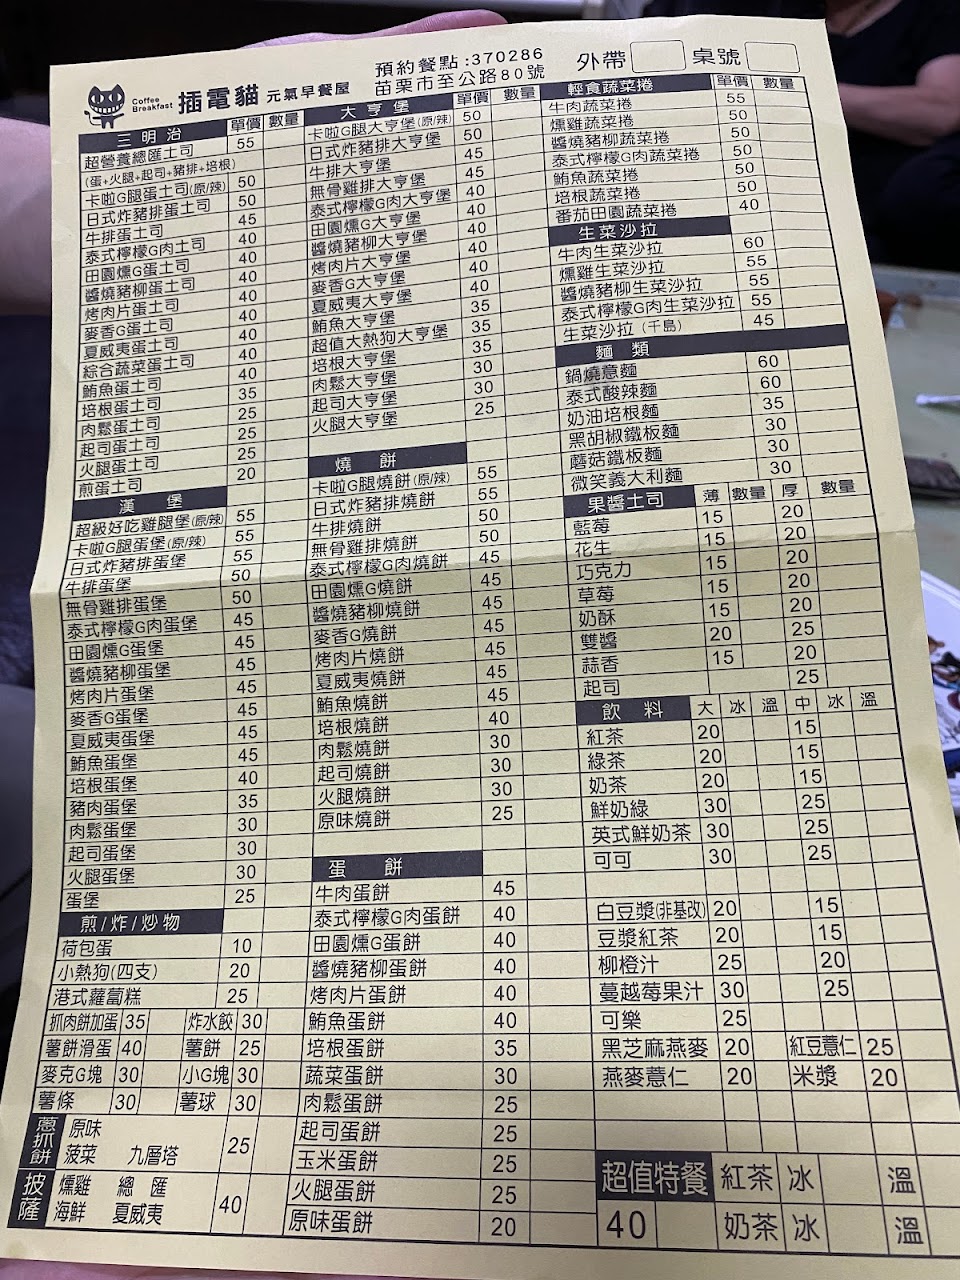 Coffee Breakfast 插電貓 元氣早餐屋
預約餐點:370286
苗栗市至公路80號
外帶 桌號
三明治 單價 數量
超營養總匯土司 55
(蛋+火腿+起司+豬排+培根)
卡啦G腿蛋土司(原/辣) 50
日式炸豬排蛋土司 50
牛排蛋土司 45
泰式檸檬G肉土司 40
田園燻G蛋土司 40
醬燒豬柳蛋土司 40
烤肉片蛋土司 40
麥香G蛋土司 40
夏威夷蛋土司 40
綜合蔬菜蛋土司 40
鮪魚蛋土司 40
培根蛋土司 35
肉鬆蛋土司 25
起司蛋土司 25
火腿蛋土司 25
煎蛋土司 20
漢堡
超級好吃雞腿堡(原/辣) 55
卡啦G腿蛋堡(原/辣) 55
日式炸豬排蛋堡 55
牛排蛋堡 50
無骨雞排蛋堡 50
泰式檸檬G肉蛋堡 45
田園燻G蛋堡 45
醬燒豬柳蛋堡 45
烤肉片蛋堡 45
麥香G蛋堡 45
夏威夷蛋堡 45
鮪魚蛋堡 45
培根蛋堡 40
豬肉蛋堡 35
肉鬆蛋堡 30
起司蛋堡 30
火腿蛋堡 30
蛋堡 25
煎/炸/炒物
荷包蛋 10
小熱狗(四支) 20
港式蘿蔔糕 25
抓肉餅加蛋 35 炸水餃 30
薯餅滑蛋 40 薯餅 25
麥克G塊 30 小G塊 30
薯條 30 薯球 30
蔥抓餅 原味 菠菜 九層塔 25
披薩 燻雞 總匯 海鮮 夏威夷 40
大亨堡 單價 數量
卡啦G腿大亨堡(原/辣) 50
日式炸豬排大亨堡 50
牛排大亨堡 45
無骨雞排大亨堡 45
泰式檸檬G肉大亨堡 40
田園燻G大亨堡 40
醬燒豬柳大亨堡 40
烤肉片大亨堡 40
麥香G大亨堡 40
夏威夷大亨堡 40
鮪魚大亨堡 35
超值大熱狗大亨堡 35
培根大亨堡 35
肉鬆大亨堡 30
起司大亨堡 30
火腿大亨堡 25
燒餅
卡啦G腿燒餅(原/辣) 55
日式炸豬排燒餅 55
牛排燒餅 50
無骨雞排燒餅 50
泰式檸檬G肉燒餅 45
田園燻G燒餅 45
醬燒豬柳燒餅 45
麥香G燒餅 45
烤肉片燒餅 45
夏威夷燒餅 45
鮪魚燒餅 45
培根燒餅 40
肉鬆燒餅 30
起司燒餅 30
火腿燒餅 30
原味燒餅 25
蛋餅
牛肉蛋餅 45
泰式檸檬G肉蛋餅 40
田園燻G蛋餅 40
醬燒豬柳蛋餅 40
烤肉片蛋餅 40
鮪魚蛋餅 40
培根蛋餅 35
蔬菜蛋餅 30
肉鬆蛋餅 25
起司蛋餅 25
玉米蛋餅 25
火腿蛋餅 25
原味蛋餅 20
輕食蔬菜捲 單價 數量
牛肉蔬菜捲 55
燻雞蔬菜捲 50
醬燒豬柳蔬菜捲 50
泰式檸檬G肉蔬菜捲 50
鮪魚蔬菜捲 50
培根蔬菜捲 50
番茄田園蔬菜捲 40
生菜沙拉
牛肉生菜沙拉 60
燻雞生菜沙拉 55
醬燒豬柳生菜沙拉 55
泰式檸檬G肉生菜沙拉 55
生菜沙拉(千島) 45
麵類
鍋燒意麵 60
泰式酸辣麵 60
奶油培根麵 35
黑胡椒鐵板麵 30
蘑菇鐵板麵 30
微笑義大利麵 30
果醬土司 薄 數量 厚 數量
藍莓 15 20
花生 15 20
巧克力 15 20
草莓 15 20
奶酥 15 20
雙醬 20 25
蒜香 15 20
起司 25
飲料 大 冰 溫 中 冰 溫
紅茶 20 15
綠茶 20 15
奶茶 20 15
鮮奶綠 30 25
英式鮮奶茶 30 25
可可 30 25
白豆漿(非基改) 20 15
豆漿紅茶 20 15
柳橙汁 25 20
蔓越莓果汁 30 25
可樂 25
黑芝麻燕麥 20 紅豆薏仁 25
燕麥薏仁 20 米漿 20
超值特餐 紅茶 冰 溫
40 奶茶 冰 溫